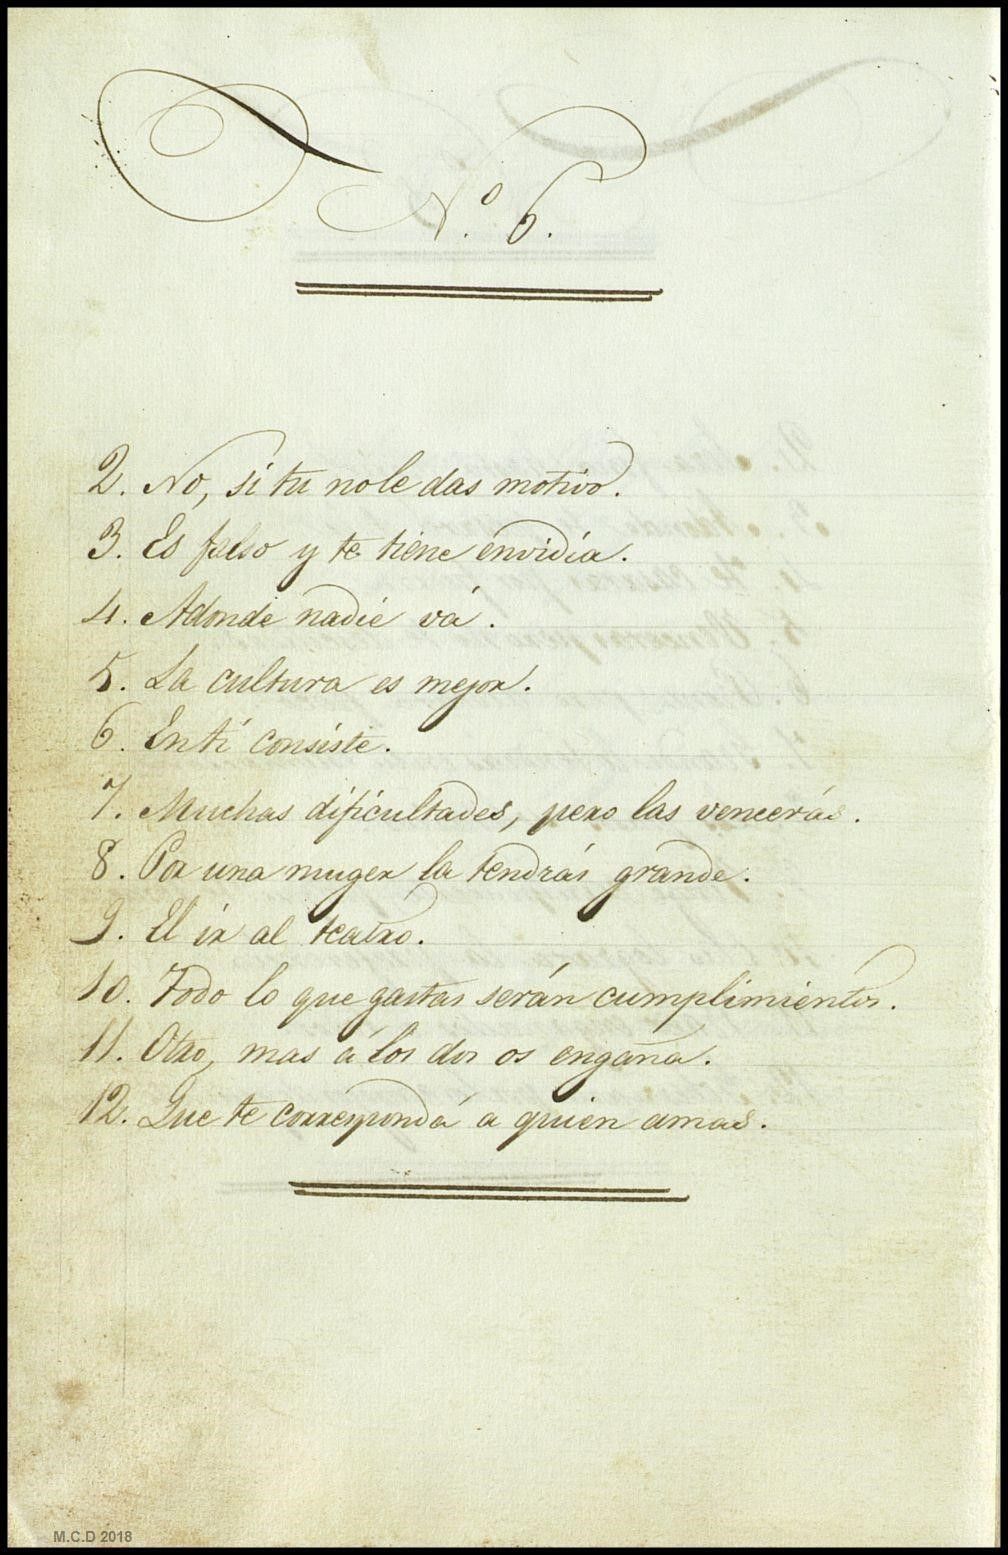 Nº. 6.
2. No, si tu no le das motivo.
3. Es falso y te tiene envidia.
4. Adonde nadie vá.
5. La cultura es mejor.
6. En tí consiste.
7. Muchas dificultades, pero las vencerás.
8. Por una muger la tendrás grande.
9. El ir al teatro.
10. Todo lo que gastas serán cumplimientos.
11. Otro, mas á los dos os engaña.
12. Que te corresponda á quien amas.
M.C.D 2018